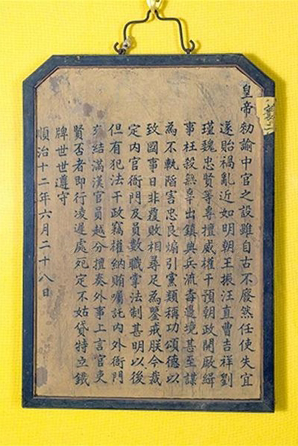 皇帝勅諭中官之設雖自古不廢然任使失宜
遂貽禍亂近如明朝王振汪直曹吉祥劉
瑾魏忠賢等專擅威權干預朝政開廠緝
事枉殺無辜出鎮典兵流毒邊境甚至謀
為不軌陷害忠良煽引黨類稱功頌德以
致國事日非覆敗相尋足為鑒戒朕今裁
定內官衙門及員數職掌法制甚明以後
但有犯法干政竊權納賄囑託內外衙門
交結滿漢官員越分擅奏外事上言官吏
賢否者即行凌遲處死定不姑貸特立鐵
牌世世遵守
順治十二年六月二十八日